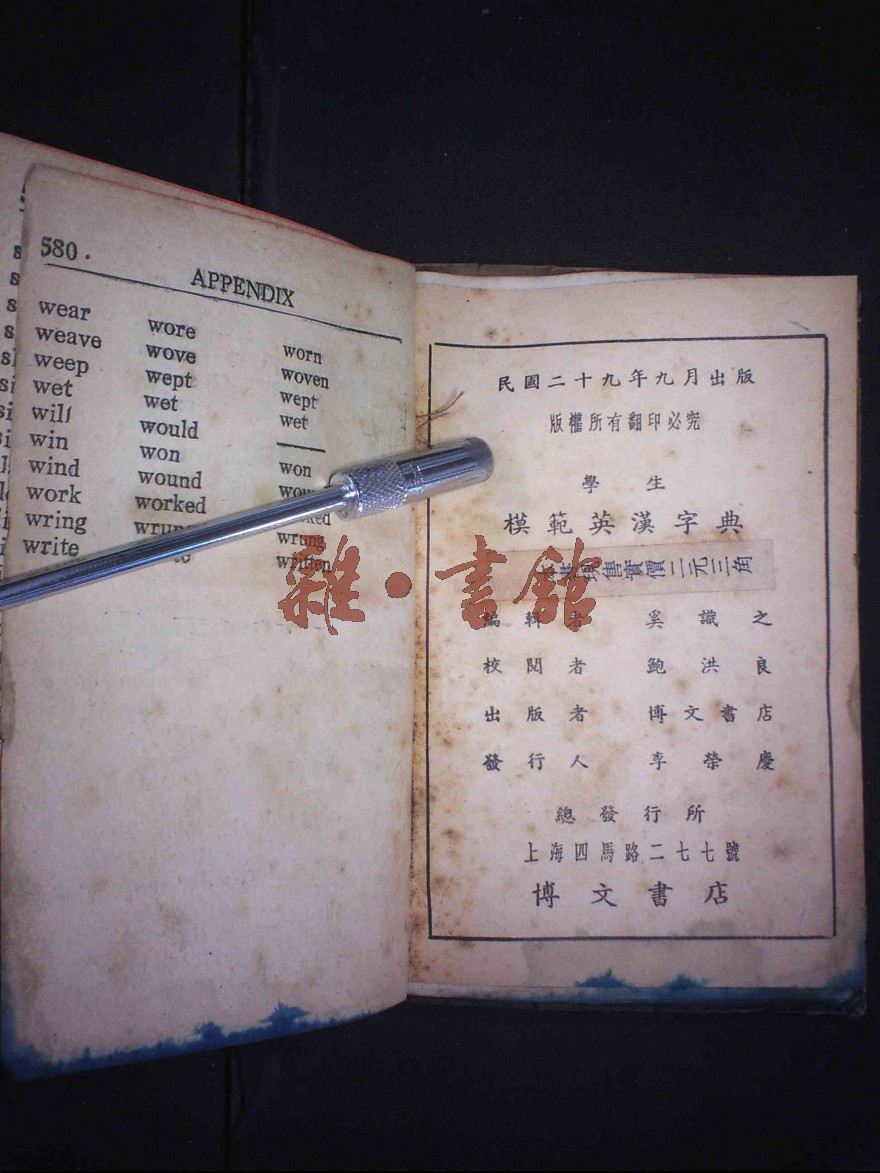 580.
APPENDIX
wear wore worn
weave wove woven
weep wept wept
wet wet wet
will would
win won won
wind wound
work worked
wring wrung
write written
民國二十九年九月出版
版權所有翻印必究
學生
模範英漢字典
售實價二元三角
編輯者 奚識之
校閱者 鮑洪良
出版者 博文書店
發行人 李榮慶
總發行所
上海四馬路二七七號
博文書店
雜·書館